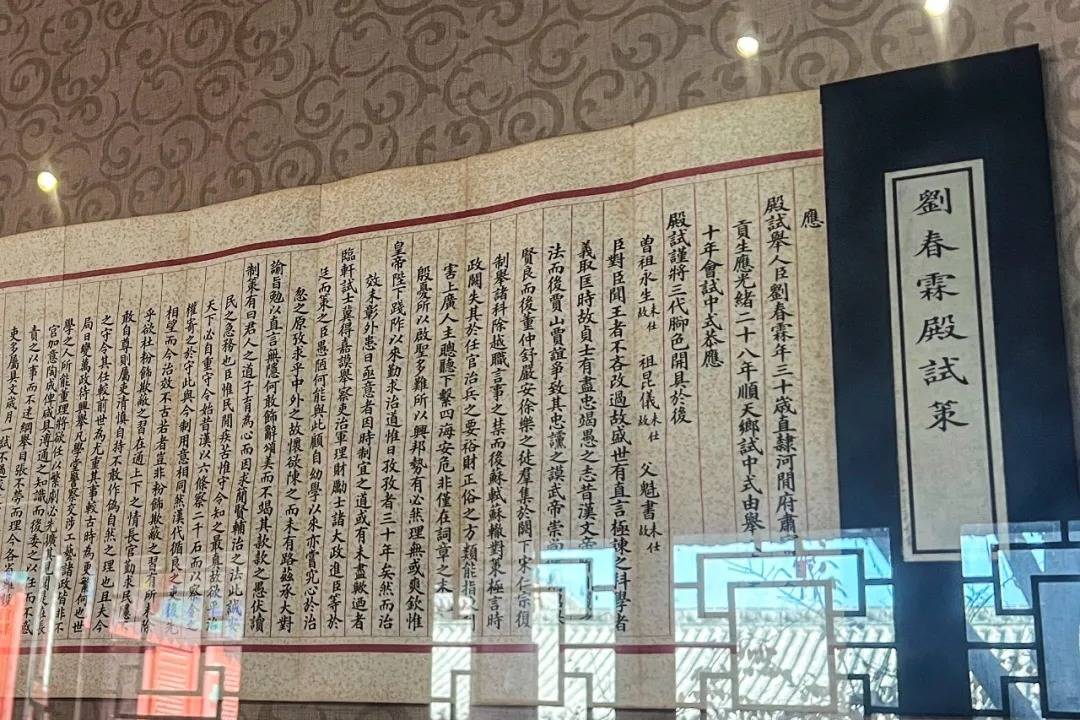 劉春霖殿試策
應
殿試舉人臣劉春霖年三十歲直隸河間府肅
貢生應光緒二十八年順天鄉試中式由舉
十年會試中式恭應
殿試謹將三代腳色開具於後
曾祖永生未仕故 祖昆儀未仕故 父魁書未仕故
臣對臣聞王者不吝改過故盛世有直言極諫之科學者
義取匡時故貞士有盡忠竭愚之志昔漢文帝
法而後賈山賈誼爭致其忠讜之謨武帝崇
賢良而後重仲舒嚴安徐樂之徒羣集於闕下宋仁宗復
制舉諸科除越職言事之禁而後蘇軾蘇轍對策極言時
政闕失其於任官治兵之要裕財正俗之方類能指
害上廣人主聰聽下繫四海安危非僅在詞章之末
殷憂所以啟聖多難所以興邦勢有必然理無或爽欽惟
皇帝陛下踐阼以來勤求治道惟日孜孜者三十年矣然而治
效未彰外患日亟意者因時制宜之道或有未盡歟過者
臨軒試士冀得嘉謨舉察吏治軍理財勵士諸大政進臣等於
廷而策之臣愚陋何能與此顧自幼學以來亦嘗究心於治
忽之原攷求乎中外之故懷欲陳之而未有路茲承大對
諭旨勉以直言無隱何敢飾辭頌美而不竭其款款之愚伏讀
制策有曰君人之道子育為心而因求簡賢輔治之法此誠安
民之急務也臣惟民間疾苦惟守令知之最真故欲平治
天下必自重守令始昔漢以六條察二千石而以察令之
權寄之於守此與今制用意相同然漢代循良之吏後先
相望而今治效不古若者豈非粉飾欺敝之習有所未除
乎欲杜粉飾欺敝之習在通上下之情長官勤求民
敢自尊則屬吏清慎自持不敢作偽自然之理也且夫今
之守令其任較前世為尤重其事較古時為更繁何也世
局日變萬政待興舉凡學堂警察交涉工藝諸政皆非不
學之人所能董理將欲任以繁劇必先擴其見聞是在長
官加意陶成俾咸具溥通之知識而後委之以任而不惑
責之以事而不迷綱舉目張不勞而理今各省
吏多屬具文歲月一試不過